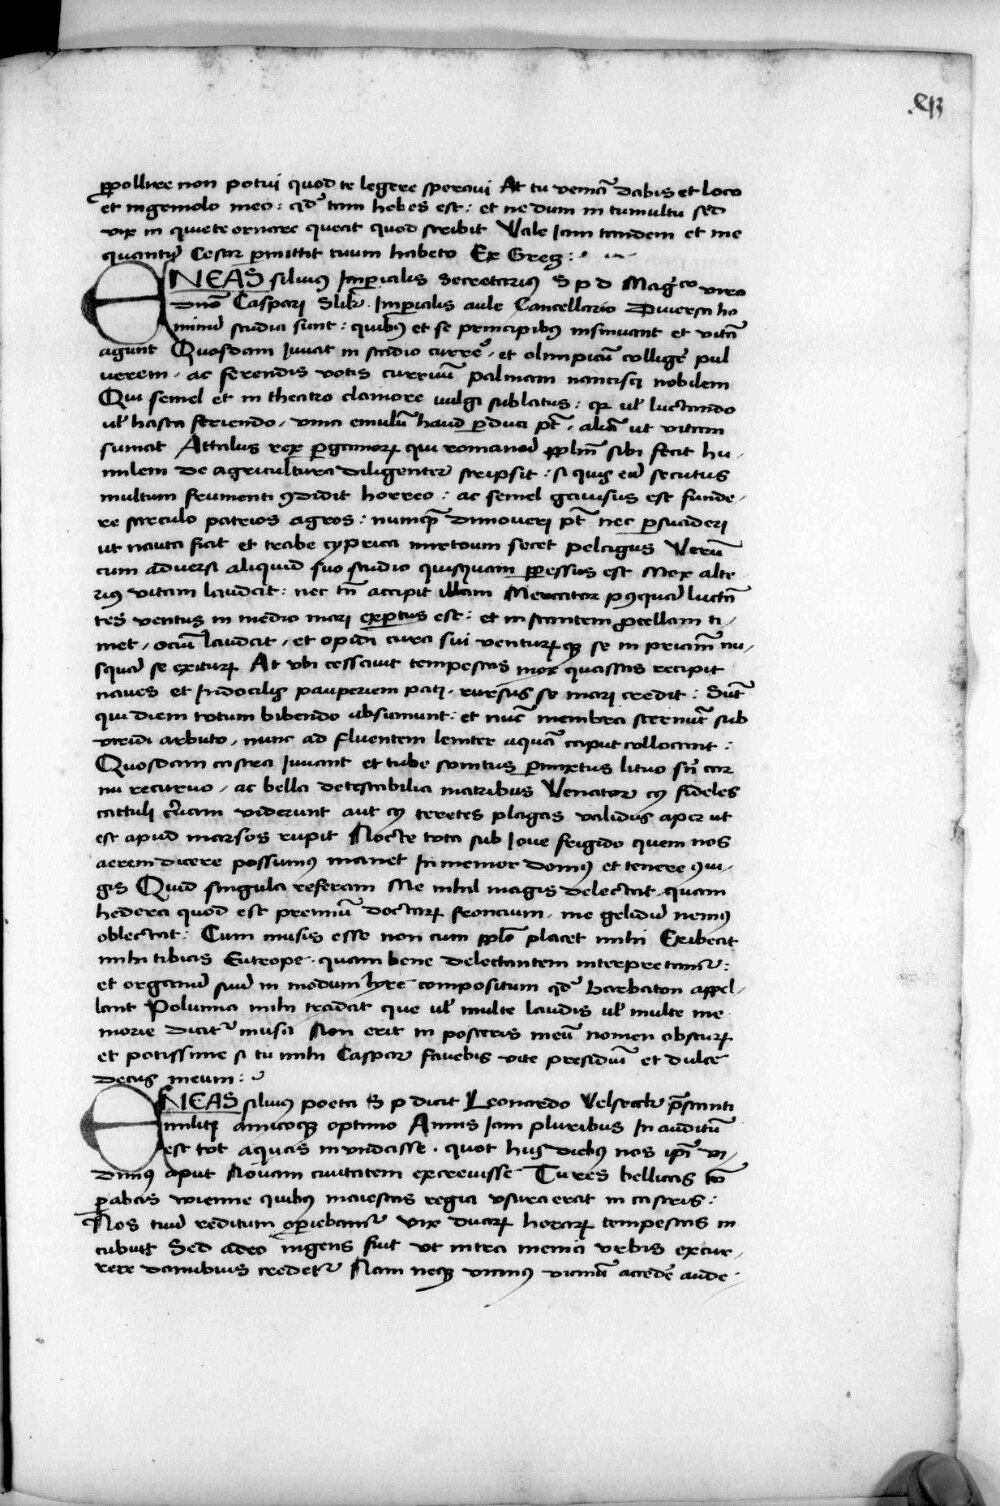 ꝑpollire non potui quod te legere speraui At tu veniā dabis et loco
et ingeniolo meo : qd' tam hebes est : et ne dum in tumultu sed
vix in quiete ornare queat quod scribit Vale Iam tandem et me
quantū Cesar ꝑmittit tuum habeto Ex Grecz :
ENEAS siluius Imꝑialis Secretarius S p d Magco viro
dnō Caspari Slik . Imꝑialis aule Cancellario Diuersa ho
minū studia sunt : quibus et se principibus insinuant et vitā
agunt Quosdam Iuuat in stadio currē , et olimpicū colligē pul
uerem , ac ferendis votis curruū palmam nancisci nobilem
Qui semel et in theatro clamore uulgi sublatus : qr ul' luctando
ul' hasta feriendo , vnā emulū haud ꝑduci pt̄ , aliā ut vitam
sumat Attalus rex ꝑgamoꝝ qui romanū ppl̄m sibi fecit hu ,
milem de agricultura diligenter scripsit : si quis eū secutus
multum frumenti ꝯdidit horreo : ac semel gauisus est funde ,
re sarculo patrios agros : numqꝫ dimoueri pt̄ nec ꝑsuaderi
ut nauta fiat et trabe cypria mirtoum secet pelagus Verū
cum aduersi aliquid suo studio quisquam ꝑpessus est Mox alte ,
rius vitam laudat : nec tn̄ accipit illam Mercator pꝰquā luctā
tes ventus in medio mari expertus est : et instantem ꝓcellam ti ,
met , ociū laudat , et opidi cura sui venturꝝqꝫ se in priam̄ nu ,
squā se exiturꝝ At vbi cessauit tempestas mox quassas recipit
naues et Indocilis pauperiem pati , rursus se mari credit : Sūt
qui diem totum bibendo absumunt : et nūc membra sternūt sub
viridi arbuto , nunc ad fluentem leniter aquā caput collocant :
Quosdam castra Iuuant et tube sonitus ꝑmixtus lituo siū cor
nu recuruo , ac bella detestabilia matribus Venator cꝰ fideles
cattuli ceruam viderunt aut cꝰ teretes plagas validus aper ut
est apud marsos rupit Nocte tota sub Ioue frigido quem nos
aerem dicere possumus manet Inmemor domus et tenere ꝯiu ,
gis Quid singula referam Me nihil magis delectat , quam
hedera quod est premiū doctaꝝ froncium , me gelidū nemus
oblectat : Cum musis esse non cum pplo placet mihi Exibeat
mihi tibias Euterpe , quam bene delectantem interpretam̄ :
et organū suū in modum lyre compositum qd' barbaton appel ,
lant Polimnia mihi tradat que ul' multe laudis ul' multe me ,
morie dicit' musa Non erit in posteris meū nomen obscurꝝ
et potissime si tu mihi Caspar fauebis vite presidiū et dulce
decus meum :
ENEAS siluius poeta S p dicit Leonardo Velseck p̄stanti
militi amicoqꝫ optimo Annis Iam pluribus In auditū
est tot aquas inundasse , quot hijs diebus nos ip̄i vi ,
dimus aput Nouam ciuitatem excreuisse Tu res bellicas tō
ꝑabas wienne quibus maiestas regia vsura erat in castris :
Nos tuū reditum oꝑiebam̄ vix duaꝝ horaꝝ tempestas in
cubuit Sed adeo ingens fuit vt intra menia vrbis excur ,
rere danubius credet' Nam neqꝫ vicinus vicinū accedē aude ,